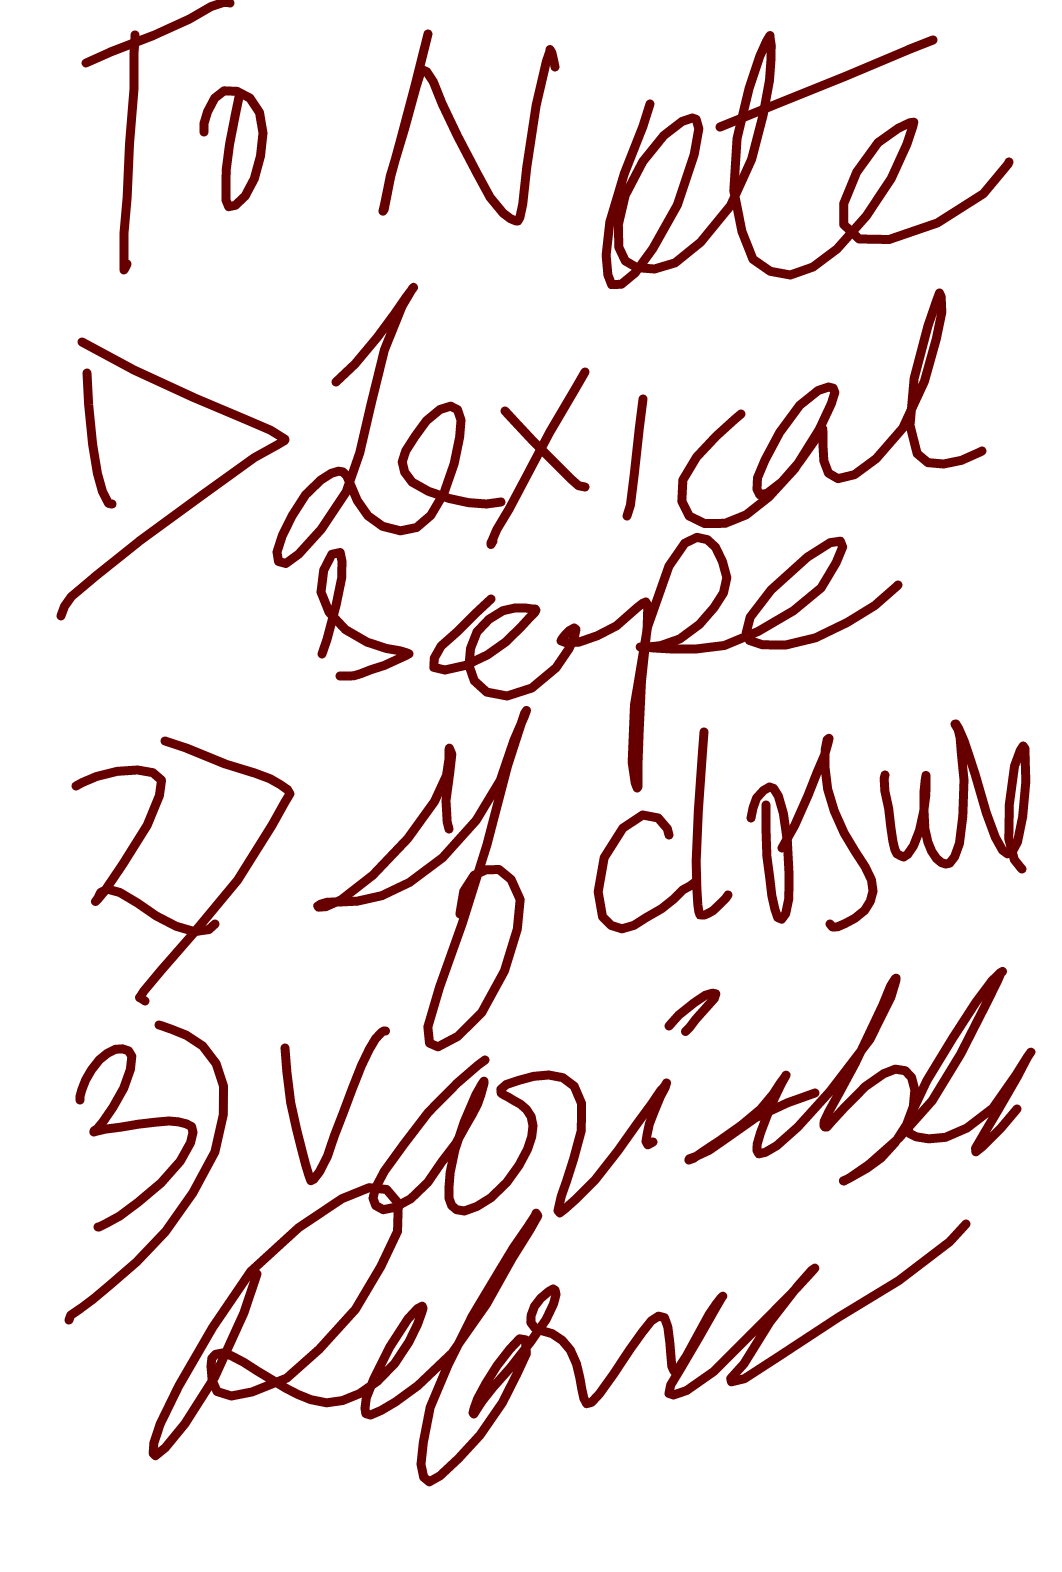 To Note
1) Lexical
Scope
2) If closure
3) Variable
Reference